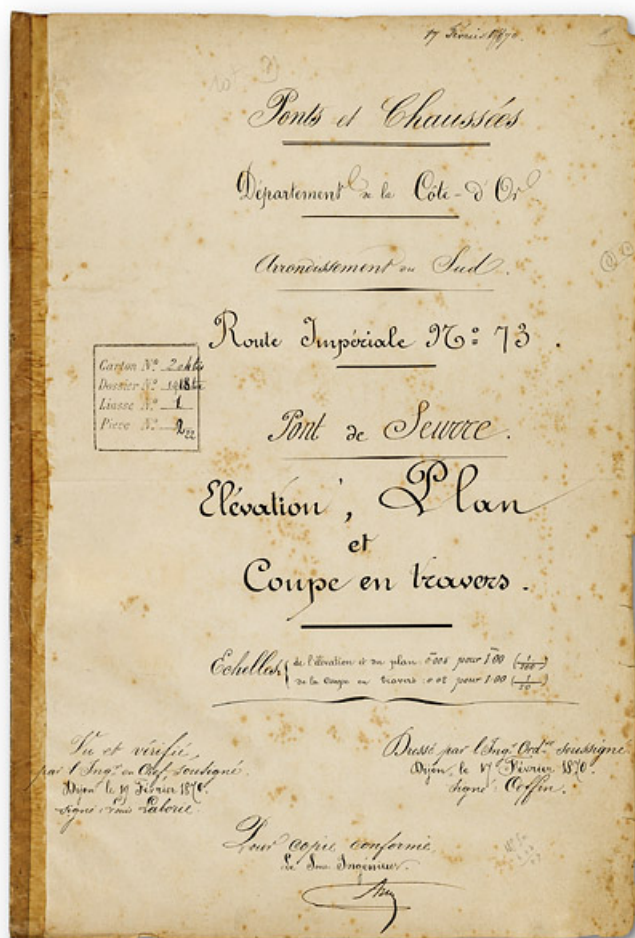 17 Février 1870.
Ponts et Chaussées
Département de la Côte-d'Or
Arrondissement du Sud.
Route Impériale Nº 73.
Carton Nº
Dossier Nº
Liasse Nº 1
Pièce Nº
Pont de Seurre.
Elévation, Plan
et
Coupe en travers.
Echelles { de l'élévation et du plan : 0.005 pour 1.00 (1/200)
de la coupe en travers : 0.02 pour 1.00 (1/50)
Vu et vérifié
par l'Ingr en Chef soussigné.
Dijon le 19 Février 1870.
signé : Louis Laborie.
Dressé par l'Ingr Ordre soussigné
Dijon, le 17 Février 1870.
signé : Coffin.
Pour copie conforme
Le Sous Ingénieur.